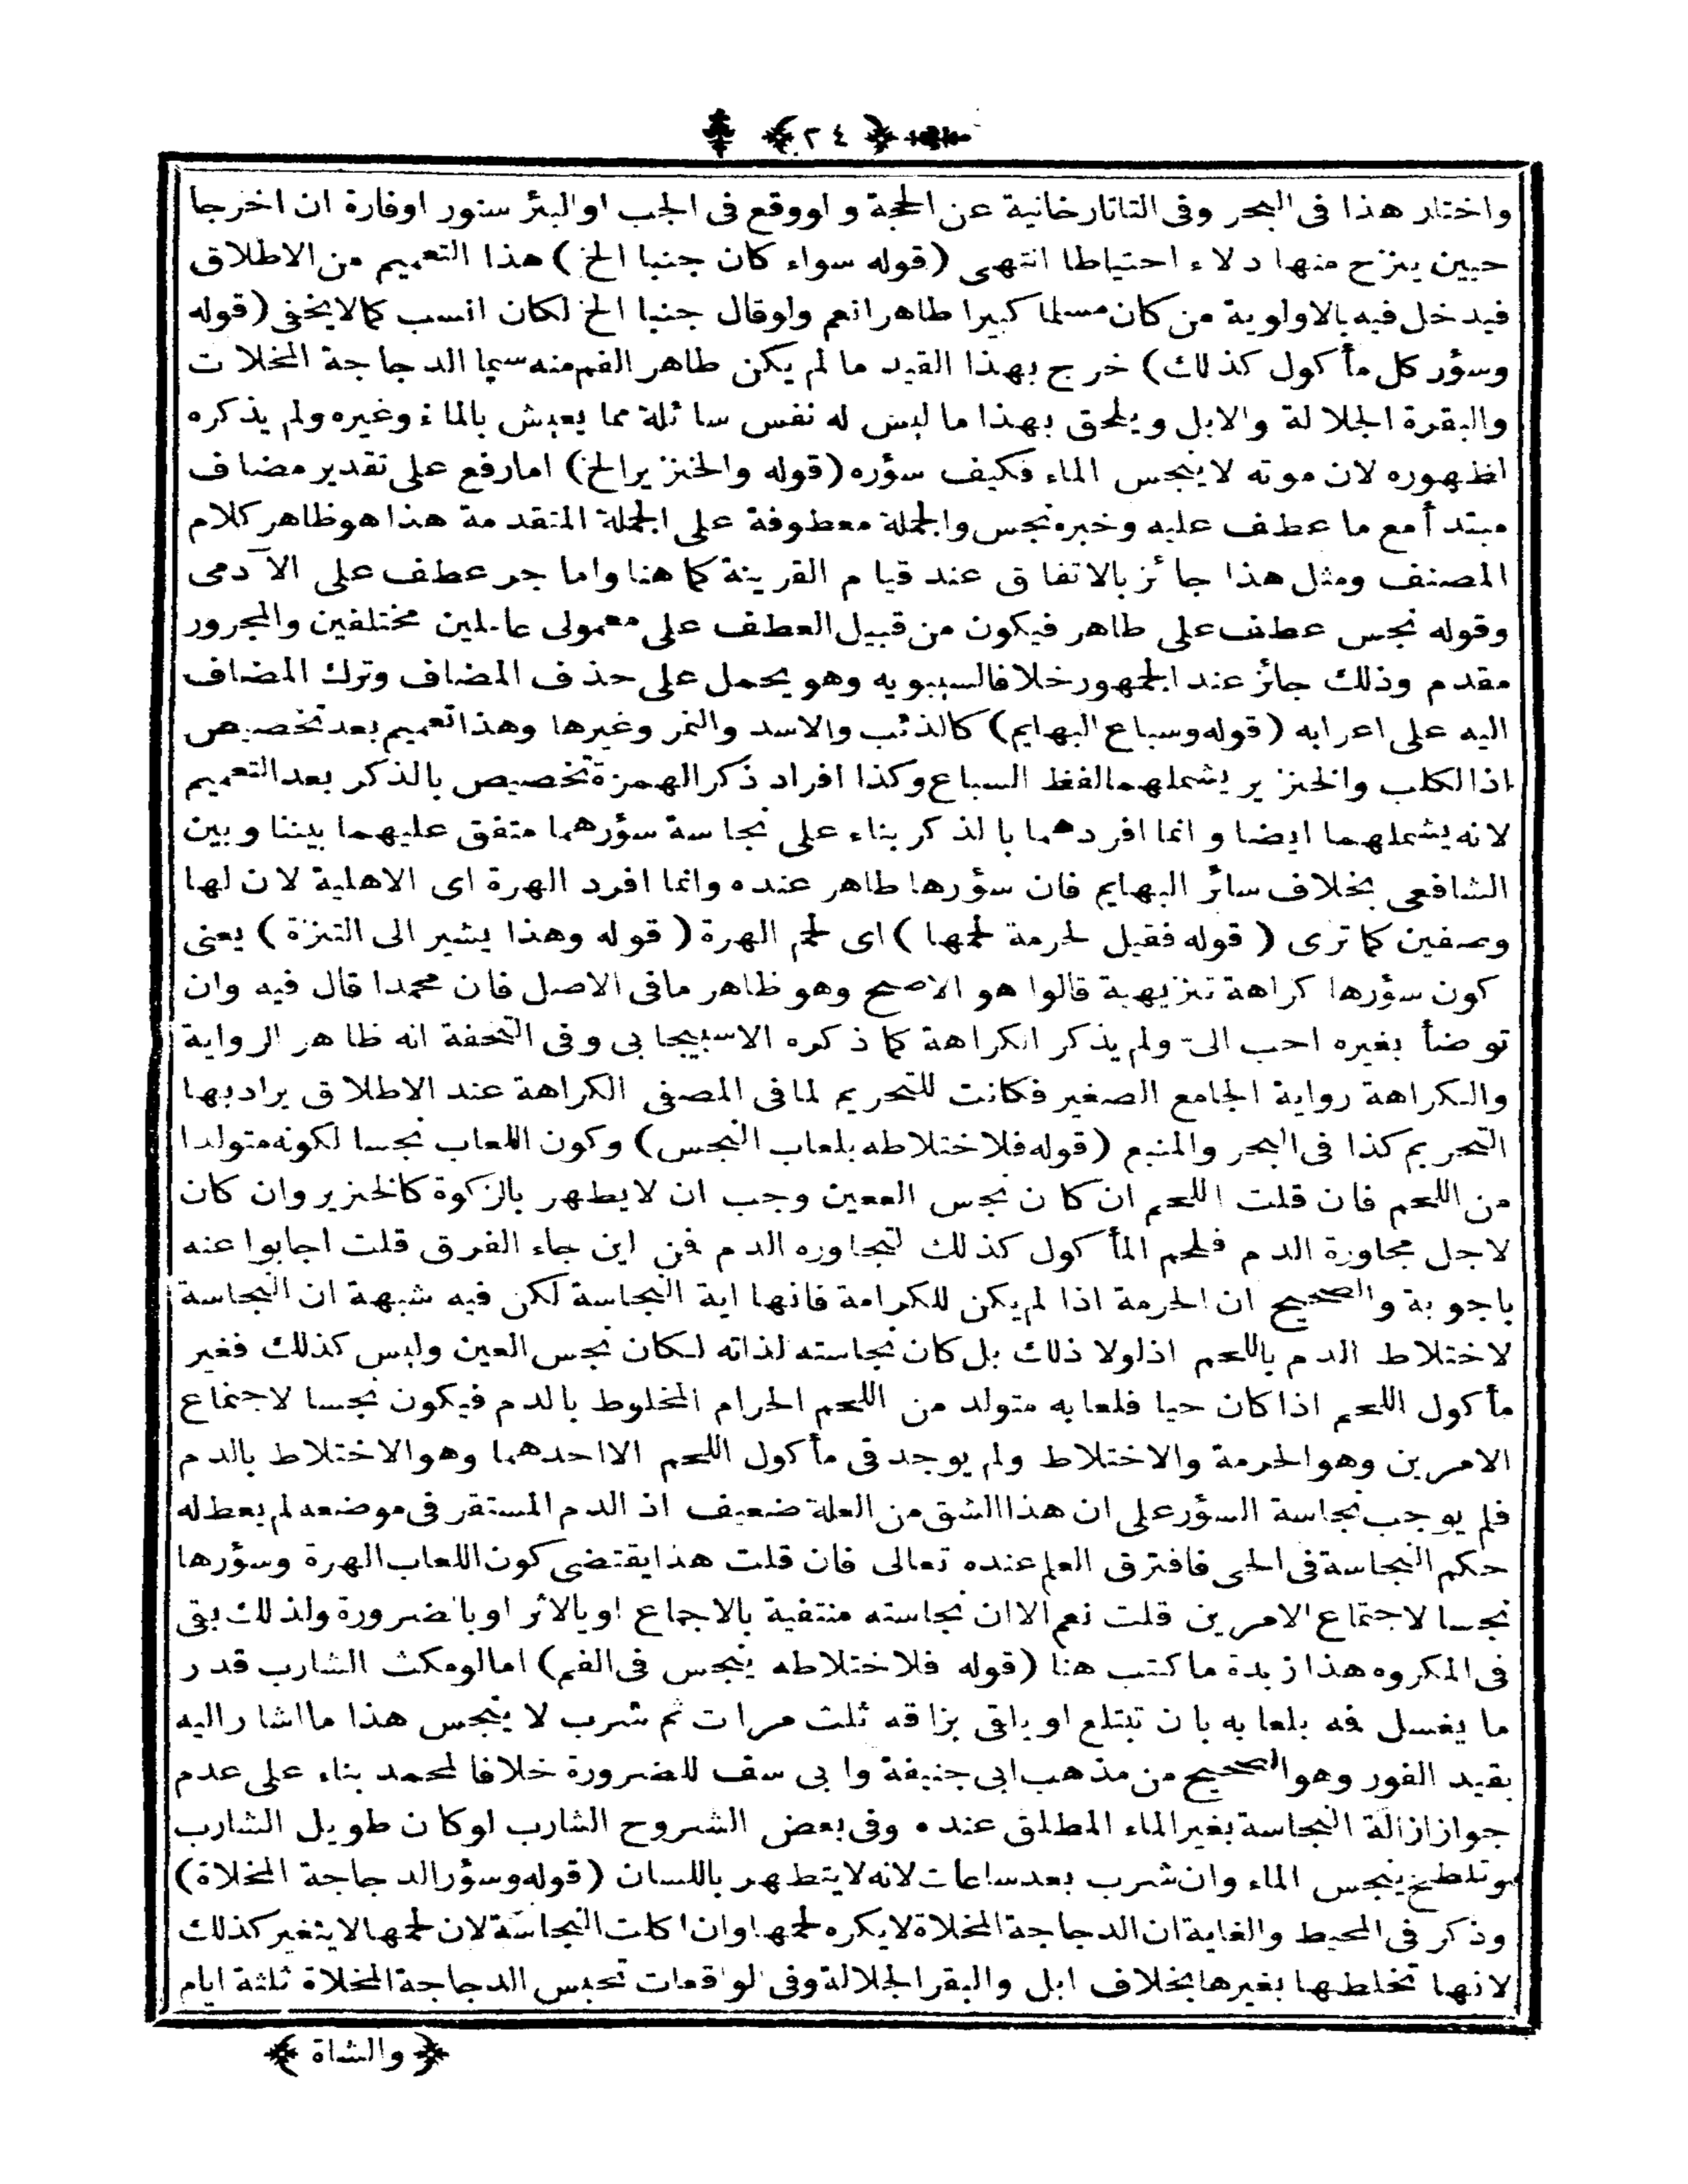 ﴿ ٢٤ ﴾
واختار هذا فى البحر وفى التاتارخانية عن الحجة و لووقع فى الجب او البئر سنور اوفارة ان اخرجا
حيين ينزح منها دلاء احتياطا انتهى (قوله سواء كان جنبا الخ) هذا التعميم من الاطلاق
فيدخل فيه بالاولوية من كان مسلما كبيرا طاهرا نعم ولوقال جنبا الخ لكان انسب كما لا يخفى (قوله
وسؤر كل مأكول كذلك) خرج بهذا القيد ما لم يكن طاهر الفم منه سيما الدجاجة المخلات
والبقرة الجلالة والابل ويلحق بهذا ما ليس له نفس سائلة مما يعيش بالماء وغيره ولم يذكره
لظهوره لان موته لا ينجس الماء فكيف سؤره (قوله والخنزير الخ) اما رفع على تقدير مضاف
مبتدأ مع ما عطف عليه وخبره نجس والجملة معطوفة على الجملة المتقدمة هذا هو ظاهر كلام
المصنف ومثل هذا جائز بالاتفاق عند قيام القرينة كما هنا واما جر عطف على الآدمى
وقوله نجس عطف على طاهر فيكون من قبيل العطف على معمولى عاملين مختلفين والمجرور
مقدم وذلك جائز عند الجمهور خلافا لسيبويه وهو يحمل على حذف المضاف وترك المضاف
اليه على اعرابه (قوله وسباع البهايم) كالذئب والاسد والنمر وغيرها وهذا تعميم بعد تخصيص
اذا لكلب والخنزير يشملهما لفظ السباع وكذا افراد ذكر الهمزة تخصيص بالذكر بعد التعميم
لانه يشملهما ايضا و انما افردهما بالذكر بناء على نجاسة سؤرهما متفق عليهما بيننا وبين
الشافعى بخلاف سائر البهايم فان سؤرها طاهر عنده وانما افرد الهرة اى الاهلية لان لها
وصفين كما ترى (قوله فقيل لحرمة لحمها) اى لحم الهرة (قوله وهذا يشير الى التنزة) يعنى
كون سؤرها كراهة تنزيهية قالوا هو الاصح وهو ظاهر مافى الاصل فان محمدا قال فيه وان
توضأ بغيره احب الىّ ولم يذكر الكراهة كما ذكره الاسبيجابى وفى التحفة انه ظاهر الرواية
والكراهة رواية الجامع الصغير فكانت للتحريم لما فى المصفى الكراهة عند الاطلاق يراد بها
التحريم كذا فى البحر والمنبع (قوله فلاختلاطه بلعاب النجس) وكون اللعاب نجسا لكونه متولدا
من اللحم فان قلت اللحم ان كان نجس العين وجب ان لا يطهر بالزكوة كالخنزير وان كان
لاجل مجاورة الدم فلحم المأكول كذلك لتجاوره الدم فمن اين جاء الفرق قلت اجابوا عنه
باجوبة والصحيح ان الحرمة اذا لم يكن للكرامة فانها اية النجاسة لكن فيه شبهة ان النجاسة
لاختلاط الدم باللحم اذلولا ذلك بل كان نجاسته لذاته لكان نجس العين وليس كذلك فغير
مأكول اللحم اذا كان حيا فلعابه متولد من اللحم الحرام المخلوط بالدم فيكون نجسا لاجتماع
الامرين وهو الحرمة والاختلاط ولم يوجد فى مأكول اللحم الا احدهما وهو الاختلاط بالدم
فلم يوجب نجاسة السؤر على ان هذا الشق من العلة ضعيف اذ الدم المستقر فى موضعه لم يعط له
حكم النجاسة فى الحى فافترق العلم عنده تعالى فان قلت هذا يقتضى كون اللعاب الهرة وسؤرها
نجسا لاجتماع الامرين قلت نعم الا ان نجاسته منتفية بالاجماع او بالاثر او بالضرورة ولذلك بقى
فى المكروه هذا زبدة ما كتب هنا (قوله فلاختلاطه ينجس فى الفم) اما لو مكث الشارب قدر
ما يغسل فمه بلعابه بان تبتلع او يلقى بزاقه ثلث مرات ثم شرب لا ينجس هذا ما اشار اليه
بقيد الفور وهو الصحيح من مذهب ابى جنيفة وابى سف للضرورة خلافا لمحمد بناء على عدم
جواز ازالة النجاسة بغير الماء المطلق عنده وفى بعض الشروح الشارب لوكان طويل الشارب
وتلطخ ينجس الماء وان شرب بعد ساعات لانه لا يتطهر باللسان (قوله وسؤر الدجاجة المخلاة)
وذكر فى المحيط والغاية ان الدجاجة المخلاة لا يكره لحمها وان اكلت النجاسة لان لحمها لا يتغير كذلك
لانها تخلطها بغيرها بخلاف ابل والبقر الجلالة وفى لواقعات تحبس الدجاجة المخلاة ثلثة ايام
﴿ والشاة ﴾